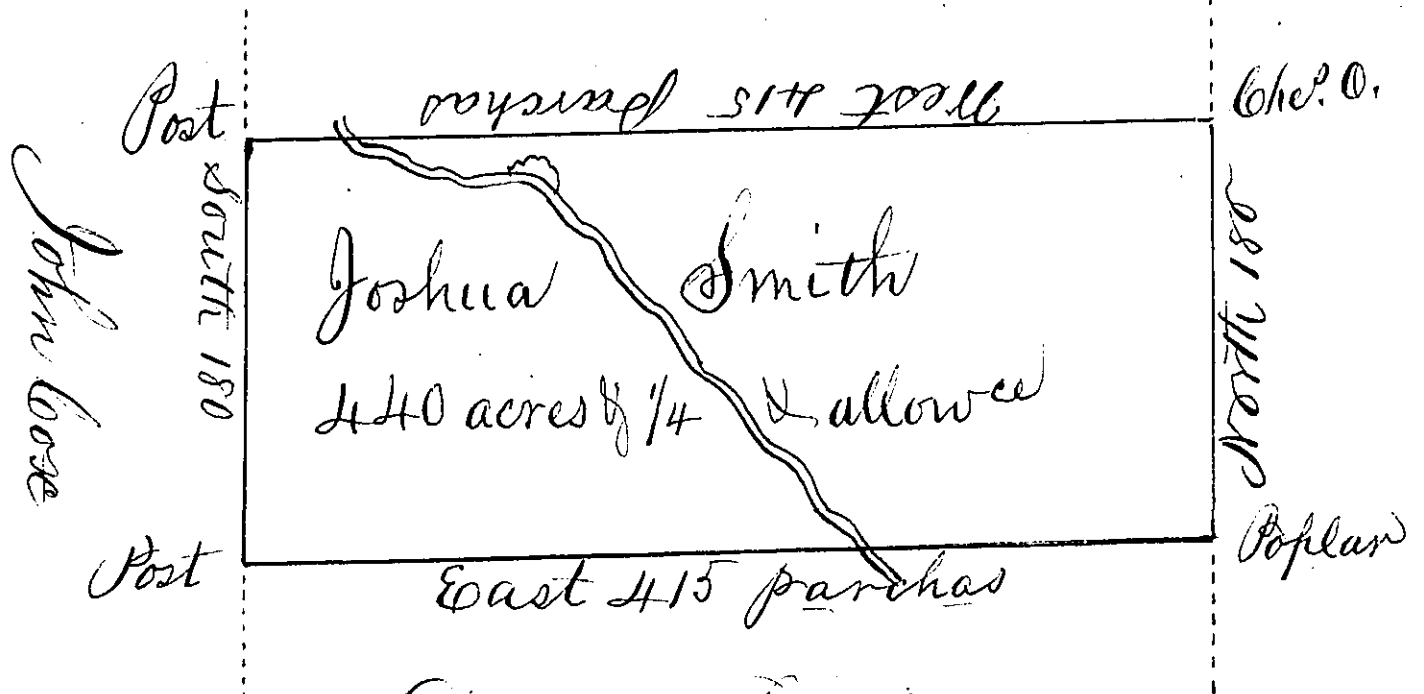 Post
West 415 parchas
Ches. O.
John Cose
South 180
Joshua Smith
440 acres & 1/4 & allowce
North 180
Post
East 415 parchas
Poplar